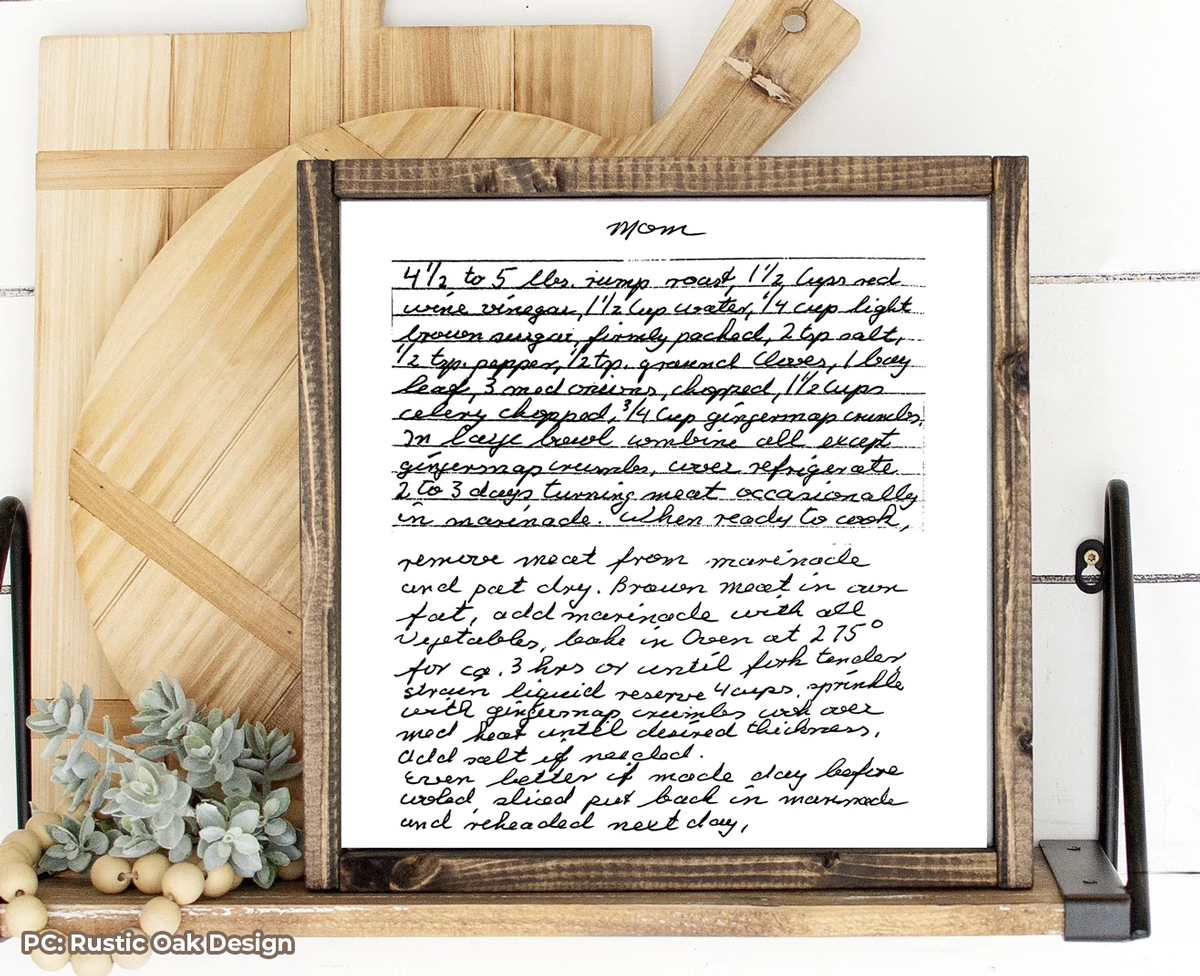 Mom
4 1/2 to 5 lbs. rump roast, 1 1/2 cups red
wine vinegar, 1 1/2 cup water, 1/4 cup light
brown sugar, firmly packed, 2 tsp salt,
1/2 tsp. pepper, 1/2 tsp. ground cloves, 1 bay
leaf, 3 med onions, chopped, 1 1/2 cups
celery chopped, 3/4 cup gingersnap crumbs.
In large bowl combine all except
gingersnap crumbs, cover refrigerate
2 to 3 days turning meat occasionally
in marinade. When ready to cook,
remove meat from marinade
and pat dry. Brown meat in own
fat, add marinade with all
vegetables, bake in oven at 275°
for ca. 3 hrs or until fork tender,
strain liquid reserve 4 cups. sprinkle
with gingersnap crumbs cook over
med heat until desired thickness,
add salt if needed.
Even better if made day before
cooled, sliced put back in marinade
and reheaded next day,
PC: Rustic Oak Design